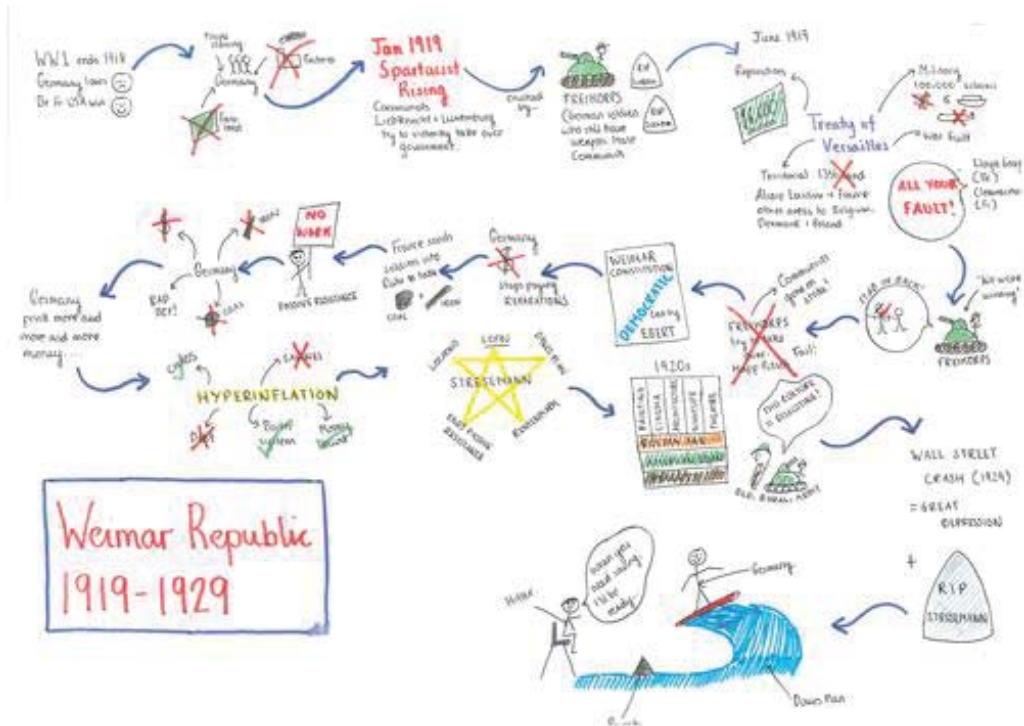 WW1 ends 1918
Germany loses
Br Fr USA win
People starving
Germany
Jan 1919
Spartacist
Rising
Communists
Liebknecht + Luxemburg
try to violently take over
government.
crushed
by...
RIP
RIP
FREIKORPS
(German soldiers
who still have
weapons. Hate
Communists
June 1919
Reparations
Military
100,000 soldiers
6
Treaty of
Versailles
War Guilt
Territorial 13% land
Alsace Lorraine → France
other areas to Belgium
Denmark + Poland
ALL YOUR
FAULT!
Lloyd George
(Br)
Clemenceau
(Fr)
STAB IN BACK!
FREIKORPS
Communists
gone on
strike!
FREIKORPS
try to take
over.
Kapp Putsch
Fail!
WEIMAR
CONSTITUTION
DEMOCRATIC
Led by
EBERT
Germany
stops paying
REPARATIONS
France sends
soldiers into
Ruhr to take
COAL + IRON
NO
WORK
PASSIVE RESISTANCE
IRON
Germany
BAD
DEBT!
COAL
Germany
print more and
more and more
money...
SAVINGS
HYPERINFLATION
Barter
system
STRESEMANN
LOCARNO
LOFN
DAWES PLAN
RENTENMARK
END PASSIVE
RESISTANCE
1920s
PAINTING
CINEMA
ARCHITECTURE
NIGHTLIFE
THEATRE
GOLDEN AGE
THIS CULTURE
= DISGUSTING!
OLD, RURAL, ARMY
WALL STREET
CRASH (1929)
= GREAT
DEPRESSION
+
RIP
STRESEMANN
Weimar Republic
1919-1929
Hitler
When you
need saving
I'll be
ready...
Germany
Dawes Plan